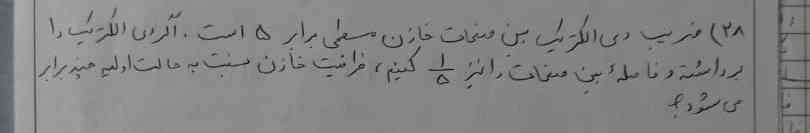 ۲۸) ضریب دی الکتریک بین صفحات خازن مسطحی برابر ۵ است. اگر دی الکتریک را
برداشته و فاصلهٔ بین صفحات را نیز ۱/۵ کنیم، ظرفیت خازن نسبت به حالت اولیه چند برابر
می شود؟